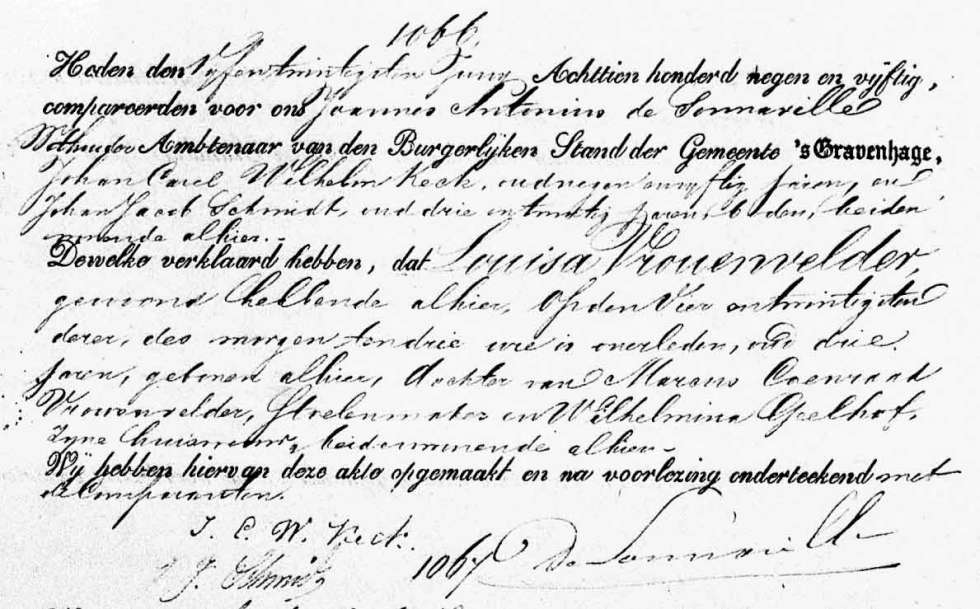 1066.
Heden den Vyfentwintigsten Juny Achttien honderd negen en vijftig,
compareerden voor ons Joannes Antonius de Sonnaville
Wethouder Ambtenaar van den Burgerlijken Stand der Gemeente 's Gravenhage,
Johan Carel Wilhelm Keck, oud negen en vyftig jaren, en
Johan Jacob Schmidt, oud drie en twintig jaren, boden, beiden
wonende alhier.-
Dewelke verklaard hebben, dat Louisa Vrouenvelder,
gewoond hebbende alhier, op den Vier entwintigsten
dezer, des morgen ten drie ure is overleden, oud drie
jaren, geboren alhier, dochter van Marcus Coenraad
Vrouwenvelder, Stoelenmaker en Wilhelmina Geelhof,
zyne huisvrouw, beiden wonende alhier-
Wij hebben hiervan deze akte opgemaakt en na voorlezing onderteekend met
de Comparanten.
J. C. W. Keck.
J. J. Schmidt 1067 De Sonnaville